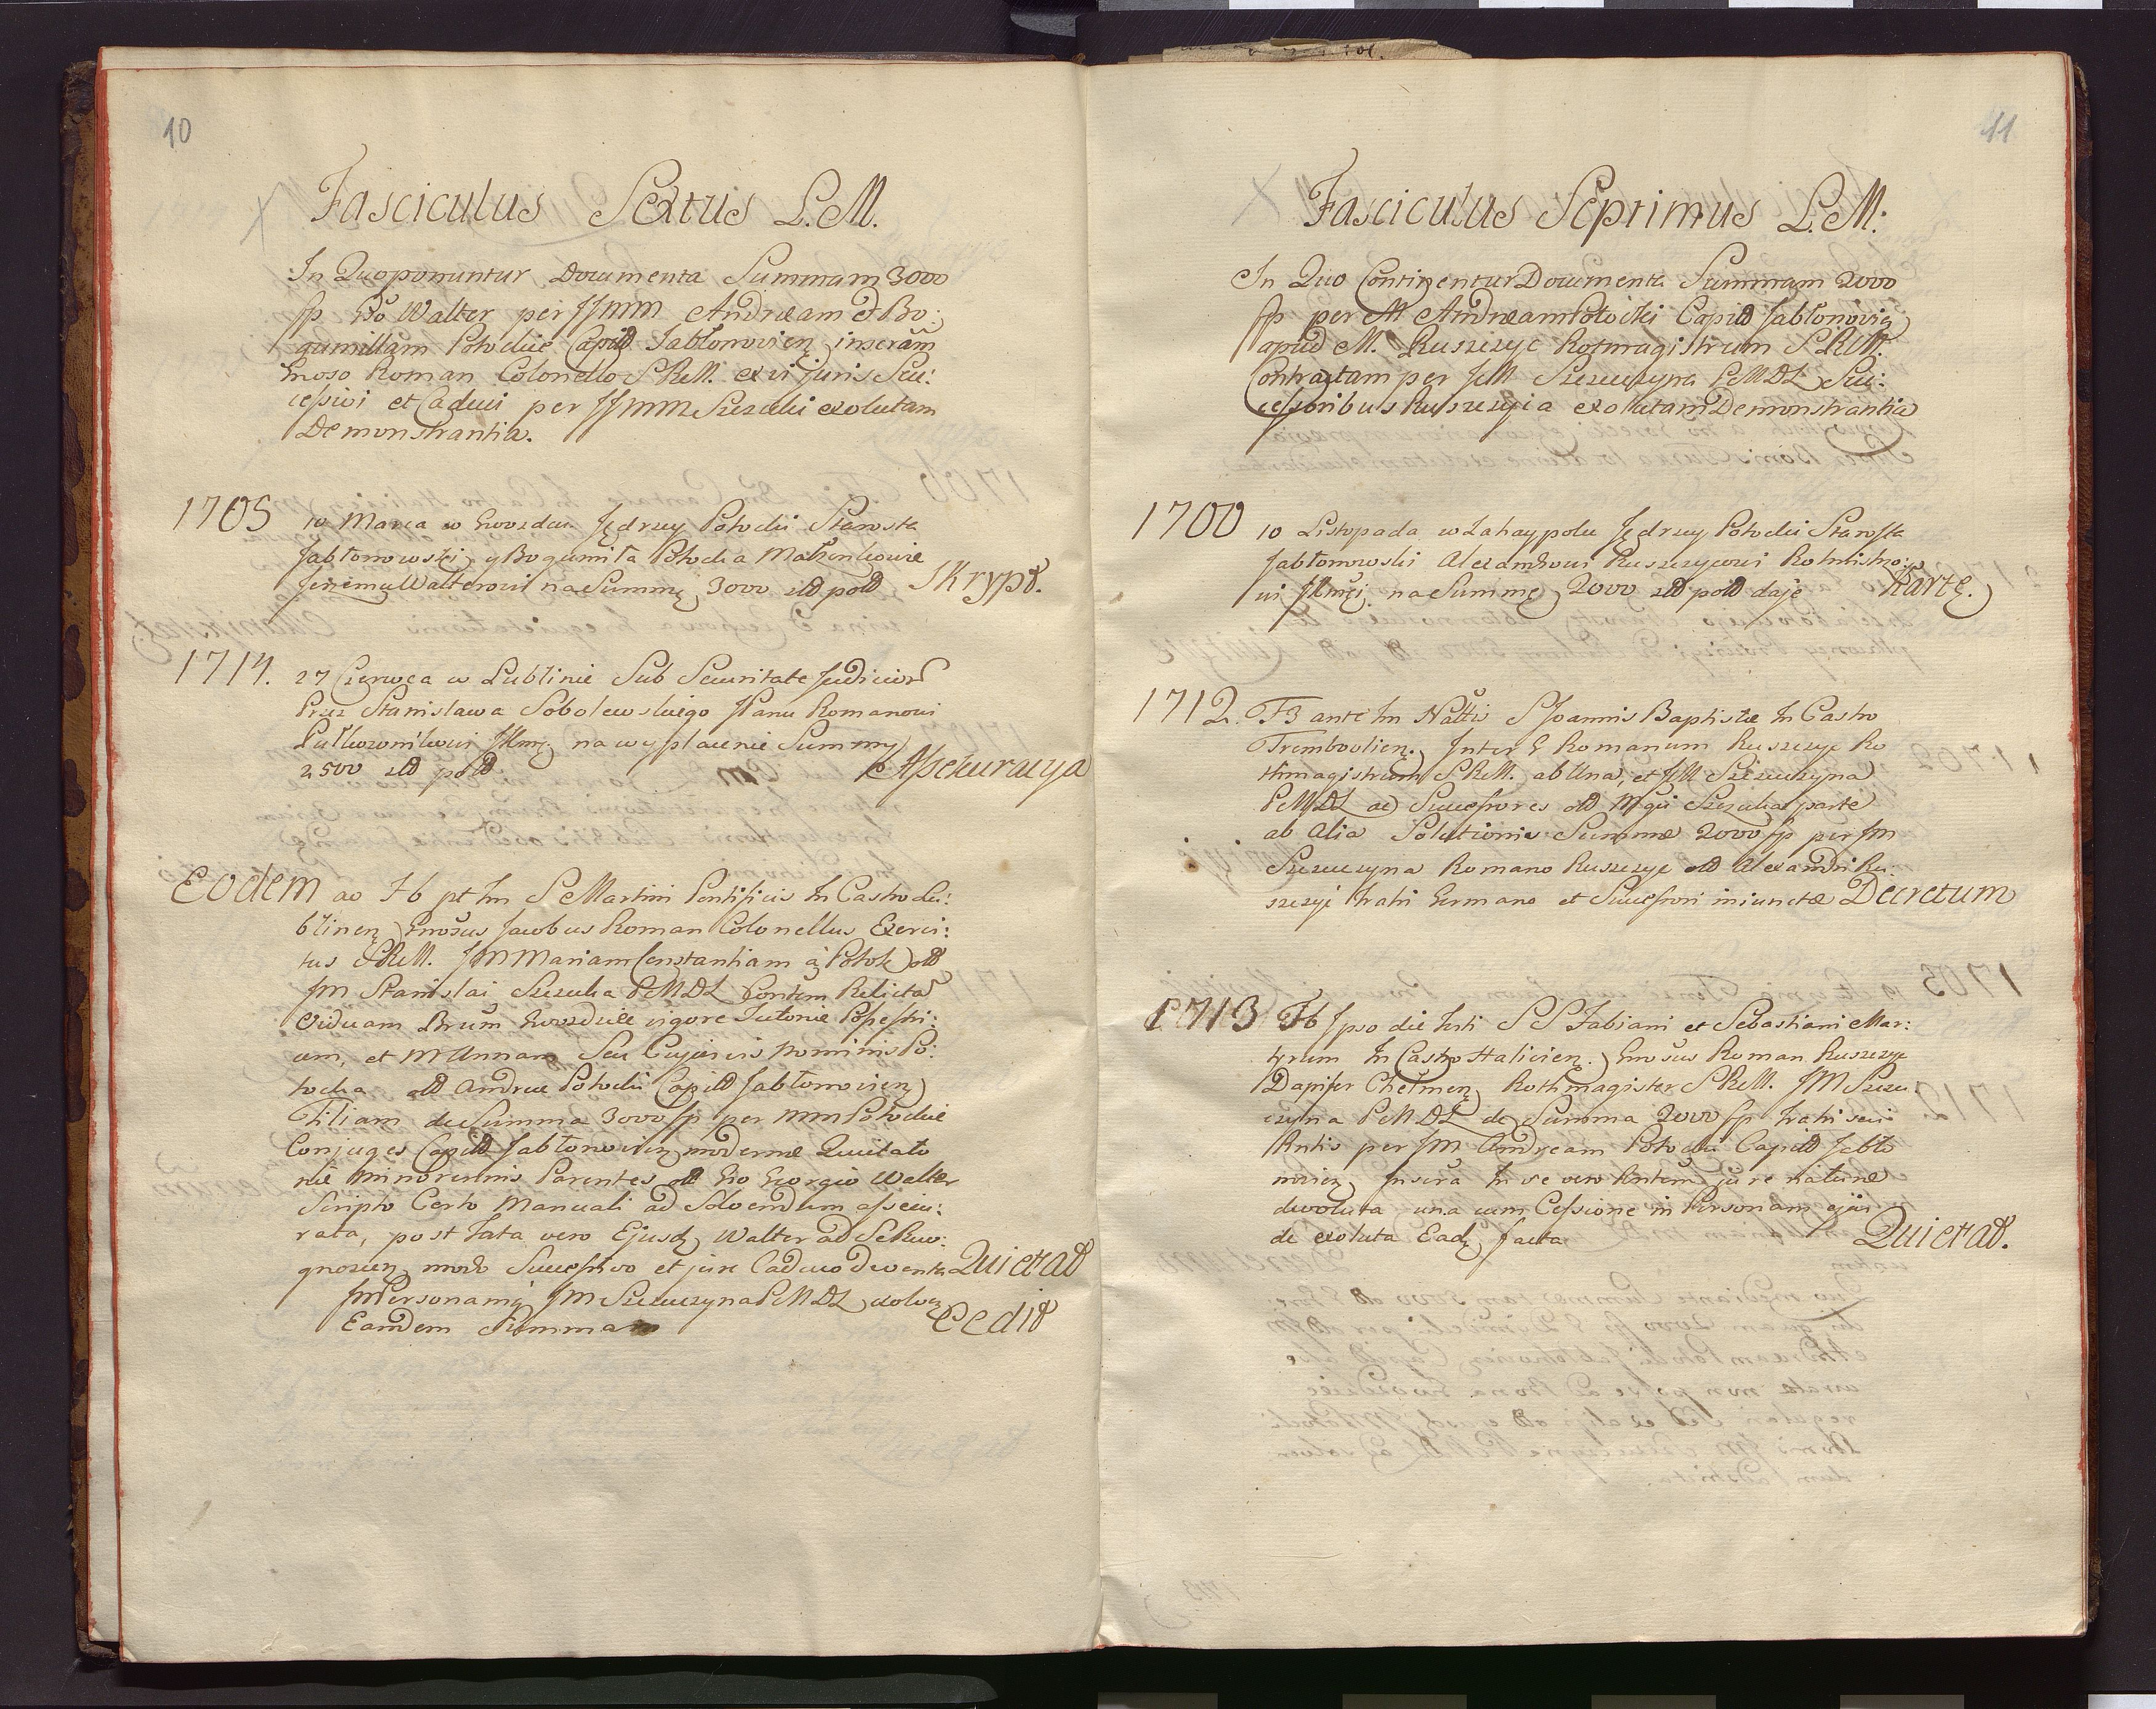 10
Fasciculus Sextus L.M.
In Quo ponuntur Documenta Summam 3000
fp Gso Walter per JJmm Andream et Bo:
gumillam Potockie Capit Jabłonovien inscram
Gnoso Roman Colonello S R M. ex vi juris Suc:
cessivi et Caduci per JJmm Szczuki exolutam
Demonstrantia.
1705 10 Marca w Gwozdcu Jędrzey Potocki Starosta
Jabłonowski y Bogumiła Potocka Małżonkowie
Jerzemu Walterowi na Summę 3000 złt polt Skrypt.
1714. 27 Czerwca w Lublinie Sub Securitate Judicior
Przez Stanisława Sobolewskiego JPanu Romanowi
Pułkownikowi JKmci na wypłacenie Summy
2500 złt polt Assekuracya
Eodem ao Fb pt fm S Martini Pontificis In Castro Lu:
blinen Gnosus Jacobus Roman Colonellus Exerci:
tus S R M. JM Mariam Constantiam a Potok olt
JM Stanislai Szczuka P M D L Contem Relicta
Viduam Brum Gwozdziec vigore Tutoriæ Possessri:
cem, et M Annam Seu Cujusvis Nominis Po:
tocka olt Andreæ Potocki Capit Jabłonovien
Filiam de Summa 3000 fp per mm Potockie
Conjuges Capit Jabłonovien modernæ Quietato
riæ minorennis Parentes olt Gso Georgio Walter
Scripto Certo Manuali ad Solvendum assecu:
rata, post Fata vero Ejusd Walter ad Se Recu:
gnoscen modo Successivo et jure Caduco deventa Quietat
JM Personamq JM Szczuczyna P M D L exolven Cedit
Eamdem Summam
11
Fasciculus Septimus L.M:
In Quo Continentur Documenta Summam 2000
fp per M Andream Potocki Capit Jabłonovien
apud M. Ruszczyc Rotmagistrum S R M.
Contractam per JM Szczuczyna P M D L Suc:
cessoribus Ruszczycia exolutam Demonstrantia
1700 10 Listopada w Zahaypolu Jędrzey Potocki Starosta
Jabłonowski Alexandrowi Ruszczycowi Rotmistrzo:
wi JKmci na Summę 2000 złt polt daje Kartę.
1712. F3 ante fm Nattis S Joannis Baptistæ In Castro
Trembovlien. Inter G Romanum Ruszczyc Ro
thmagistrum S R M. ab Una, et JM Szczuczyna
P M D L ac Successores olt Mgci Szczuka parte
ab Alia Solutionis Summæ 2000 fp per JM
Szczuczyna Romano Ruszczyc olt Alexandri Ru:
szczyc Fratri Germano et Successori injunctæ Decretum
1713 Fb Ipso die Festi S S Fabiani et Sebastiani Mar:
tyrum In Castro Halicien. Gnosus Roman Ruszczyc
Dapifer Chełmen Rothmagister S R M. JM Szczu
czyna P M D L de Summa 2000 fp Fratri sui
Rntis per JM Andream Potocki Capit Jabło
novien Inscra In se vero Rntem jure naturæ
devoluta una cum Cessione in Personam ejus
de exoluta Ead facta Quietat.